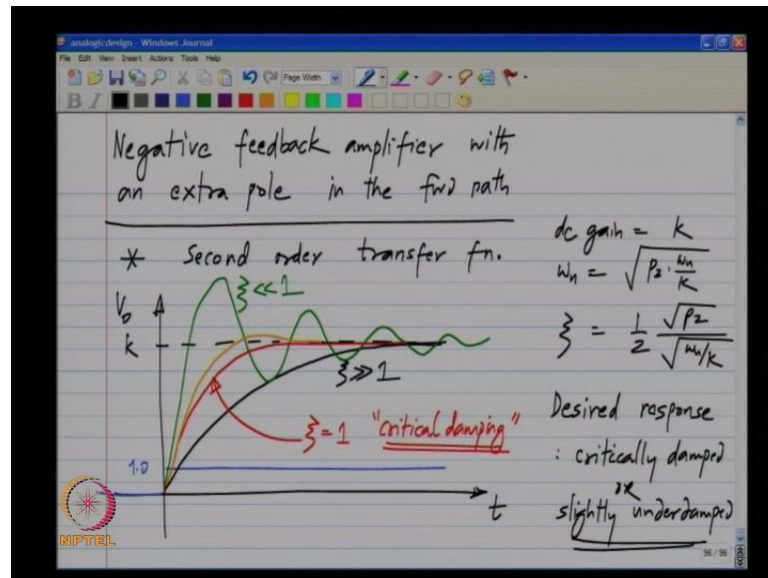 analogicdesign - Windows Journal
File Edit View Insert Actions Tools Help
Page Width
B I
Negative feedback amplifier with
an extra pole in the fwd path
* Second order transfer fn.
dc gain = k
ωn = √(p2 · ωu/k)
ξ = 1/2 √p2 / √(ωu/k)
Vo
ξ << 1
k
ξ >> 1
ξ = 1 "critical damping"
1.0
t
Desired response
: critically damped
or
slightly underdamped
NPTEL
96 / 96